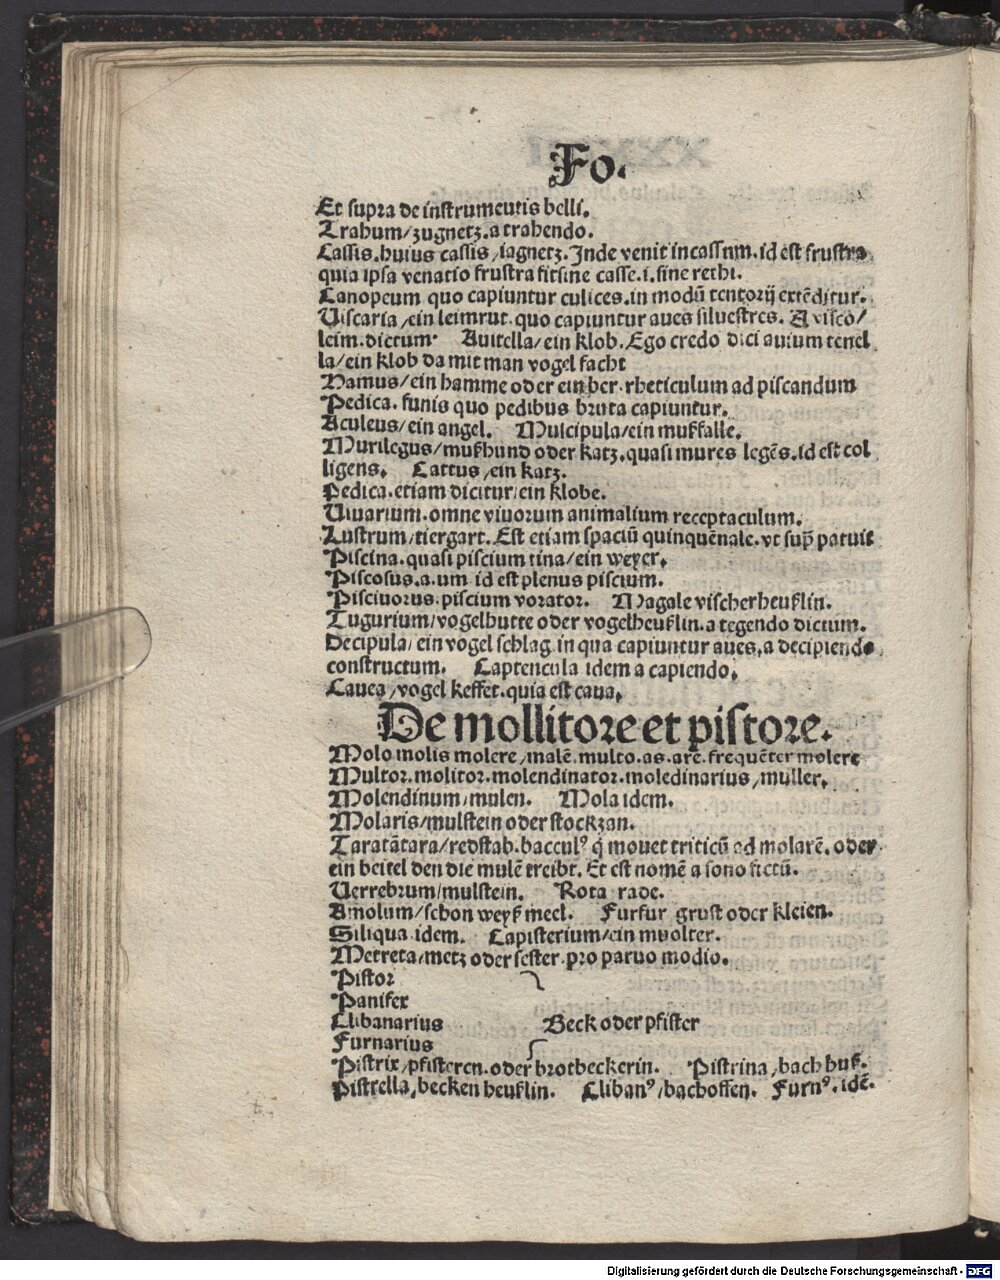 Fo.
Et supra de instrumentis belli.
Trahum/zugnetz.a trahendo.
Cassis.huius cassis/iagnetz.Inde venit incassum.id est frustra
quia ipsa venatio frustra fit sine casse.i.sine rethi.
Canopeum quo capiuntur culices.in modū tentorij extēditur.
Viscaria/ein leimrut.quo capiuntur aues siluestres. A visco/
leim.dictum. Auitella/ein klob.Ego credo dici auium tenel
la/ein klob da mit man vogel facht
Hamus/ein hamme oder ein ber.rheticulum ad piscandum
Pedica.funis quo pedibus bruta capiuntur.
Aculeus/ein angel. Mulcipula/ein mußfalle.
Murilegus/mußhund oder katz.quasi mures legēs.id est col
ligens. Cattus/ein katz.
Pedica.etiam dicitur/ein klobe.
Viuarium.omne viuorum animalium receptaculum.
Lustrum/tiergart.Est etiam spaciū quinquēnale.vt sup̄ patuit
Piscina.quasi piscium tina/ein weyer.
Piscosus.a.um id est plenus piscium.
Pisciuorus.piscium vorator. Magale vischerheußlin.
Tugurium/vogelhutte oder vogelheußlin.a tegendo dictum.
Decipula/ein vogel schlag in qua capiuntur aues.a decipiendo
constructum. Captencula idem a capiendo.
Cauea/vogel keffet.quia est caua.
De mollitore et pistore.
Molo molis molere/malē.multo.as.are.frequēter molere
Multor.molitor.molendinator.moledinarius/muller.
Molendinum/mulen. Mola idem.
Molaris/mulstein oder stockzan.
Taratātara/redstab.baccul⁹ q̄ mouet triticū ad molarē.oder
ein beitel den die mulē treibt. Et est nomē a sono fictū.
Verrebrum/mulstein. Rota rade.
Amolum/schon weyß meel. Furfur grust oder kleien.
Siliqua idem. Capisterium/ein muolter.
Metreta/metz oder sester.pro paruo modio.
Pistor
Panifex
Clibanarius Beck oder pfister
Furnarius
Pistrix/pfisteren.oder brotbeckerin. Pistrina/bach huß.
Pistrella/becken heußlin. Cliban⁹/bachoffen. Furn⁹.idē.
Digitalisierung gefördert durch die Deutsche Forschungsgemeinschaft - DFG